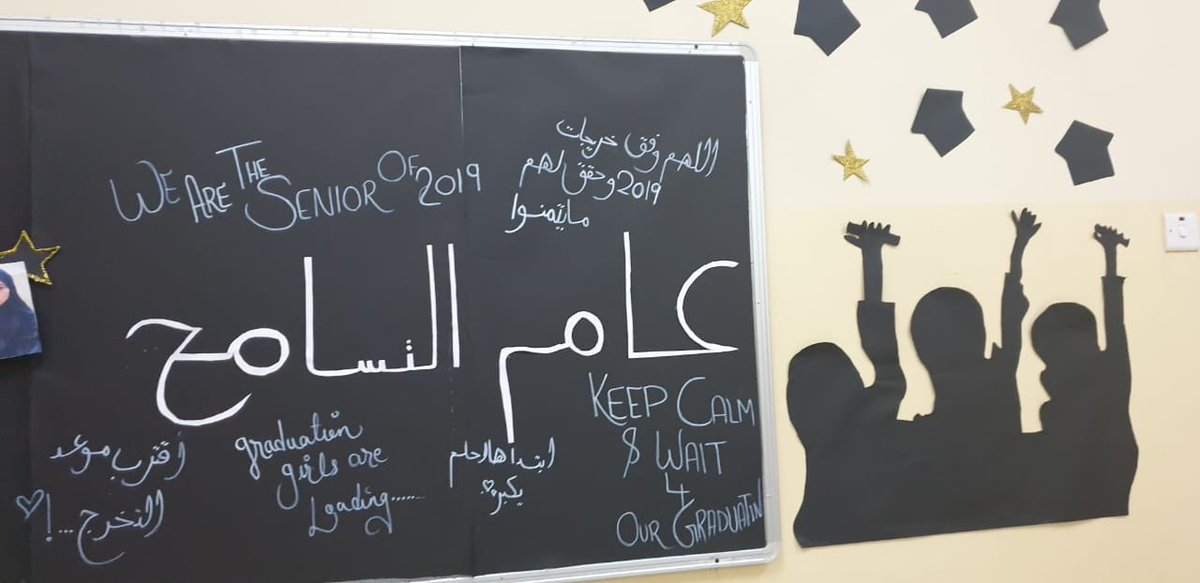 WE ARE THE SENIOR OF 2019
اللهم وفق خريجات
2019 وحقق لهم
مايتمنوا
عام التسامح
KEEP CALM
& WAIT
4
OUR GRADUATIN
ابتدا هالحلم
يكبر
graduation
girls are
Loading......
اقترب موعد
التخرج ...!